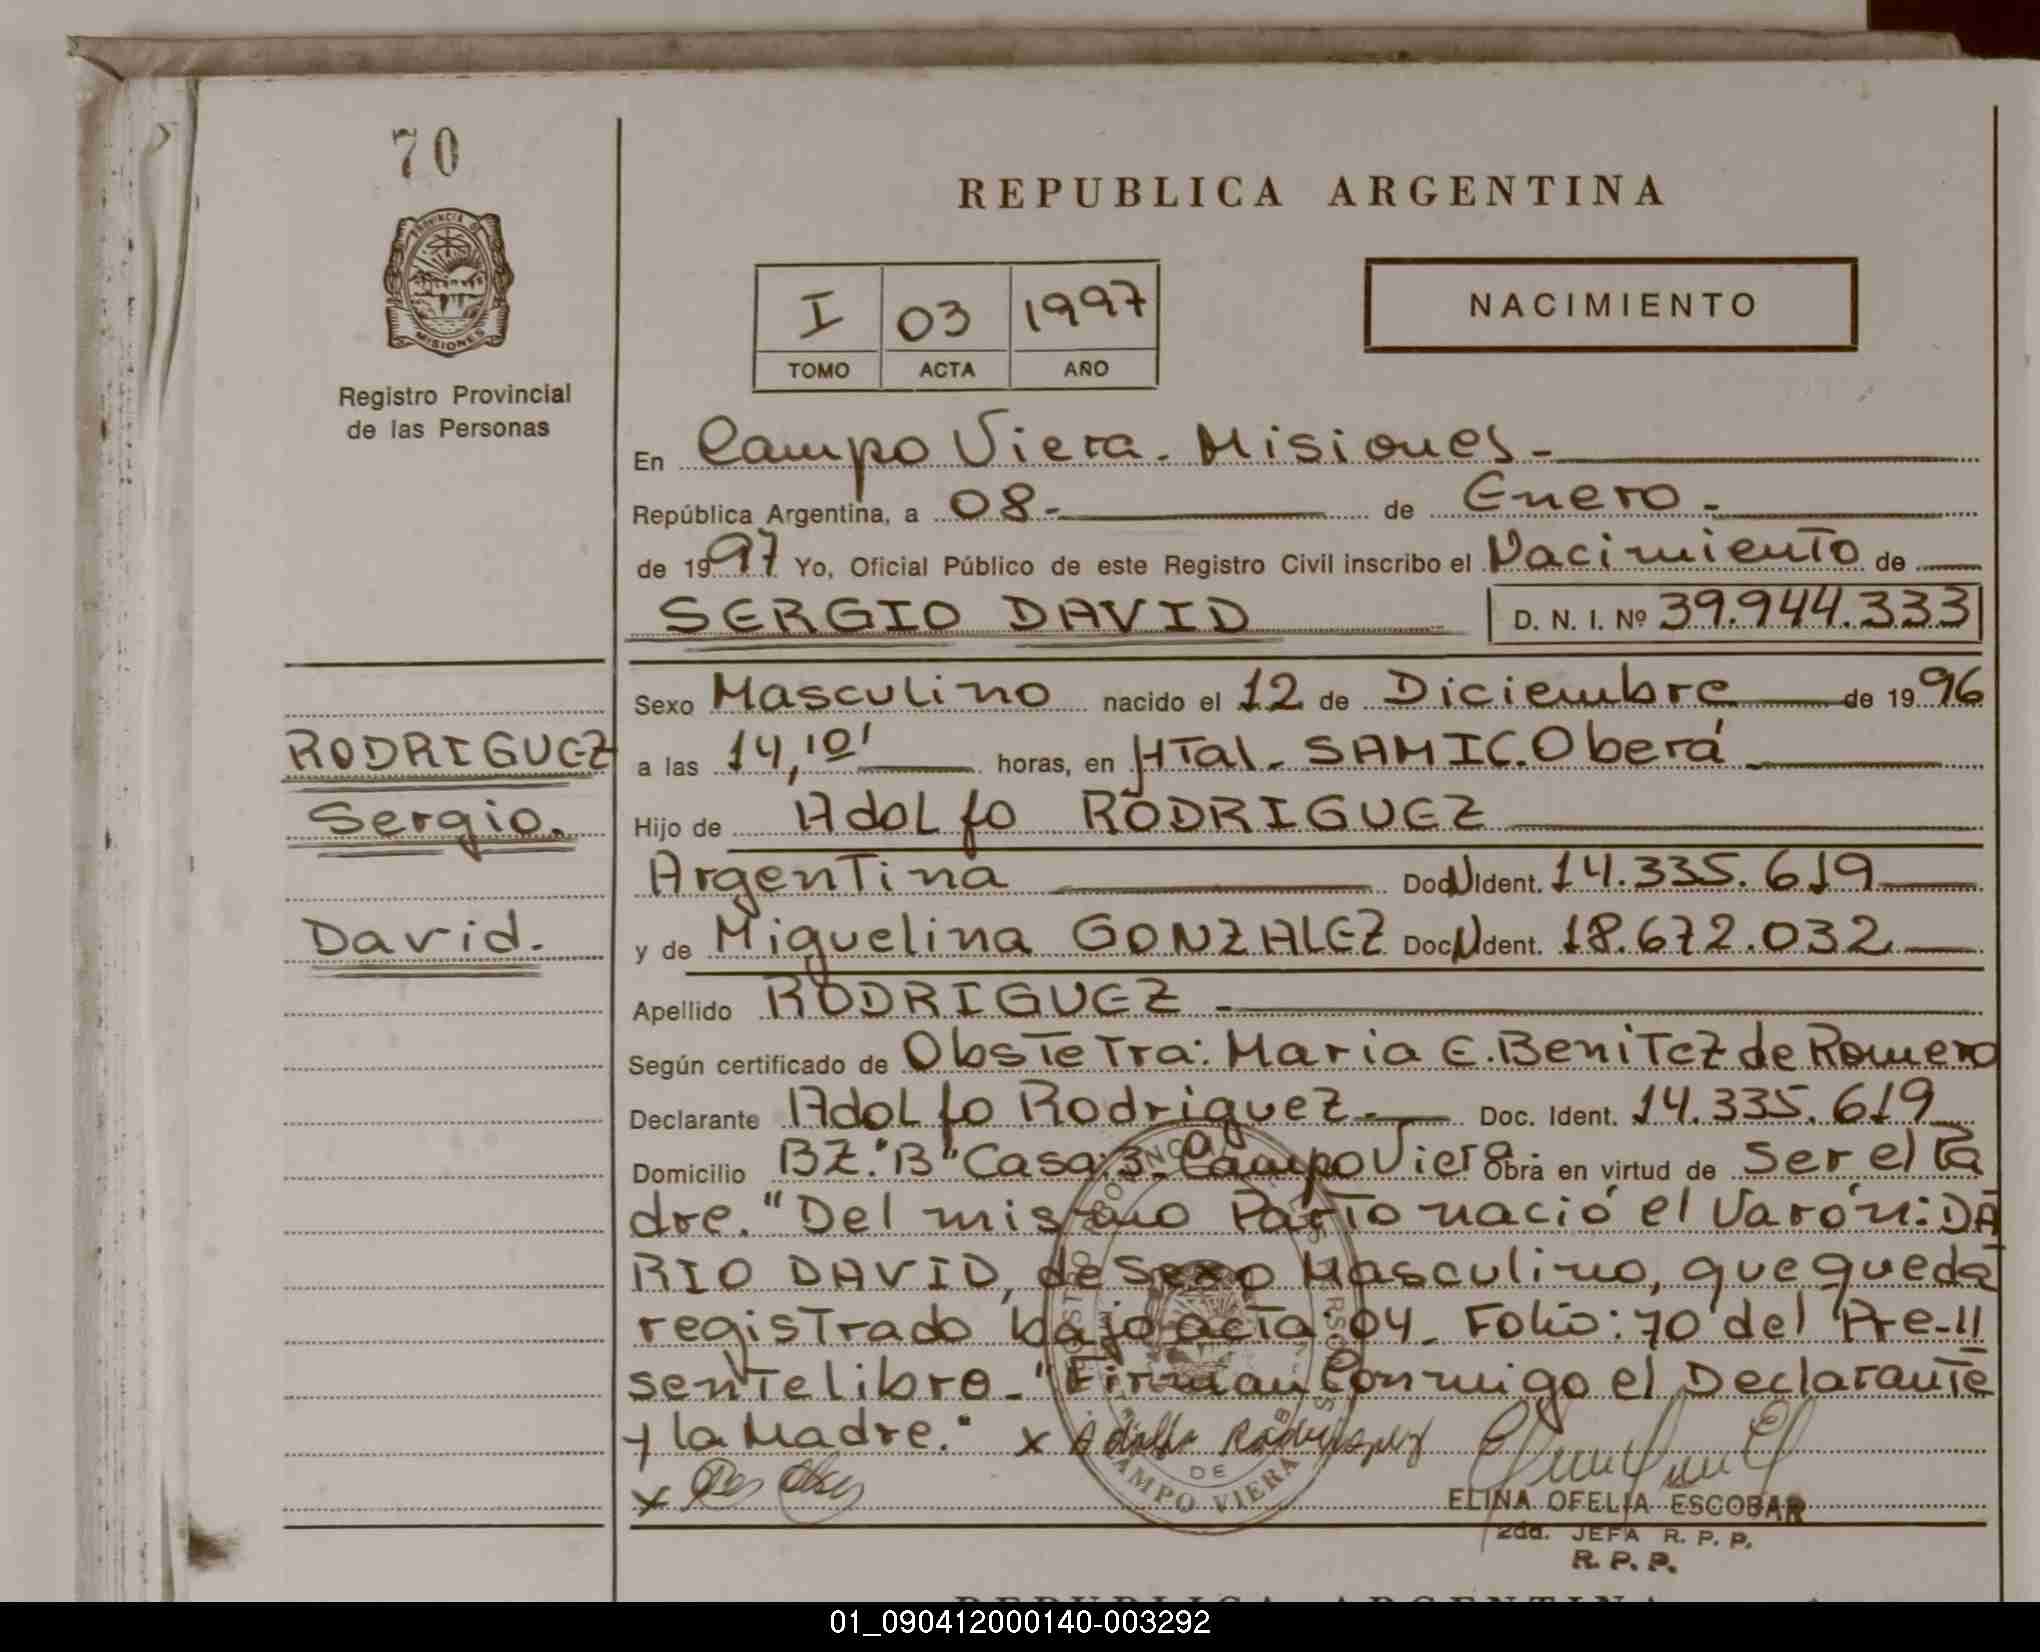 70
PROVINCIA
MISIONES
Registro Provincial
de las Personas
REPUBLICA ARGENTINA
I 03 1997
TOMO ACTA AÑO
NACIMIENTO
En Campo Viera - Misiones -
República Argentina, a 08 - de Enero -
de 1997 Yo, Oficial Público de este Registro Civil inscribo el Nacimiento de
SERGIO DAVID D. N. I. Nº 39.944.333
Sexo Masculino nacido el 12 de Diciembre de 1996
RODRIGUEZ
a las 14,10' horas, en HTal. SAMIC. Oberá
Sergio.
Hijo de Adolfo RODRIGUEZ
Argentina Doc N Ident. 14.335.619
David.
y de Miguelina GONZALEZ Doc N Ident. 18.672.032
Apellido RODRIGUEZ -
Según certificado de Obstetra: Maria E. Benitez de Romero
Declarante Adolfo Rodriguez - Doc. Ident. 14.335.619
Domicilio BZ. "B" Casa: 3 - Campo Viera Obra en virtud de ser el Pa
dre. "Del mismo Parto nació el Varón: DA
RIO DAVID, de sexo Masculino, que queda
registrado bajo acta 04 - Folio: 70 del Pre-//
sente libro - "Firman Conmigo el Declarante
y la Madre." x Adolfo Rodriguez
x
DE
CAMPO VIERA
ELINA OFELIA ESCOBAR
2da. JEFA R. P. P.
R. P. P.
REPUBLICA ARGENTINA
01_090412000140-003292